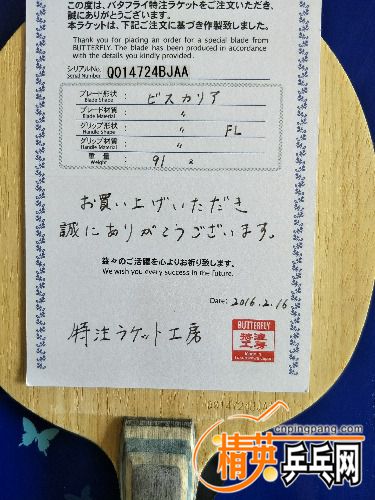 この度は、バタフライ特注ラケットをご注文いただき、
誠にありがとうございます。
本ラケットは、下記ご注文に基づき作製致しました。
Thank you for placing an order for a special blade from
BUTTERFLY. The blade has been produced in accordance
with the details you kindly provided.
シリアルNo.
Serial Number
Q014724BJAA
ブレード形状 : ビスカリア
Blade Shape
ブレード材質 : 〃
Blade Material
グリップ形状 : 〃 FL
Handle Shape
グリップ材質 : 〃
Handle Material
重量 : 91 g
Weight
お買い上げいただき
誠にありがとうございます。
益々のご活躍を心よりお祈り致します。
We wish you every success in the future.
Date: 2016.2.16
特注ラケット工房
BUTTERFLY
特注
工房
Q014724BJAA
cnpingpang.com
精英乒乓网